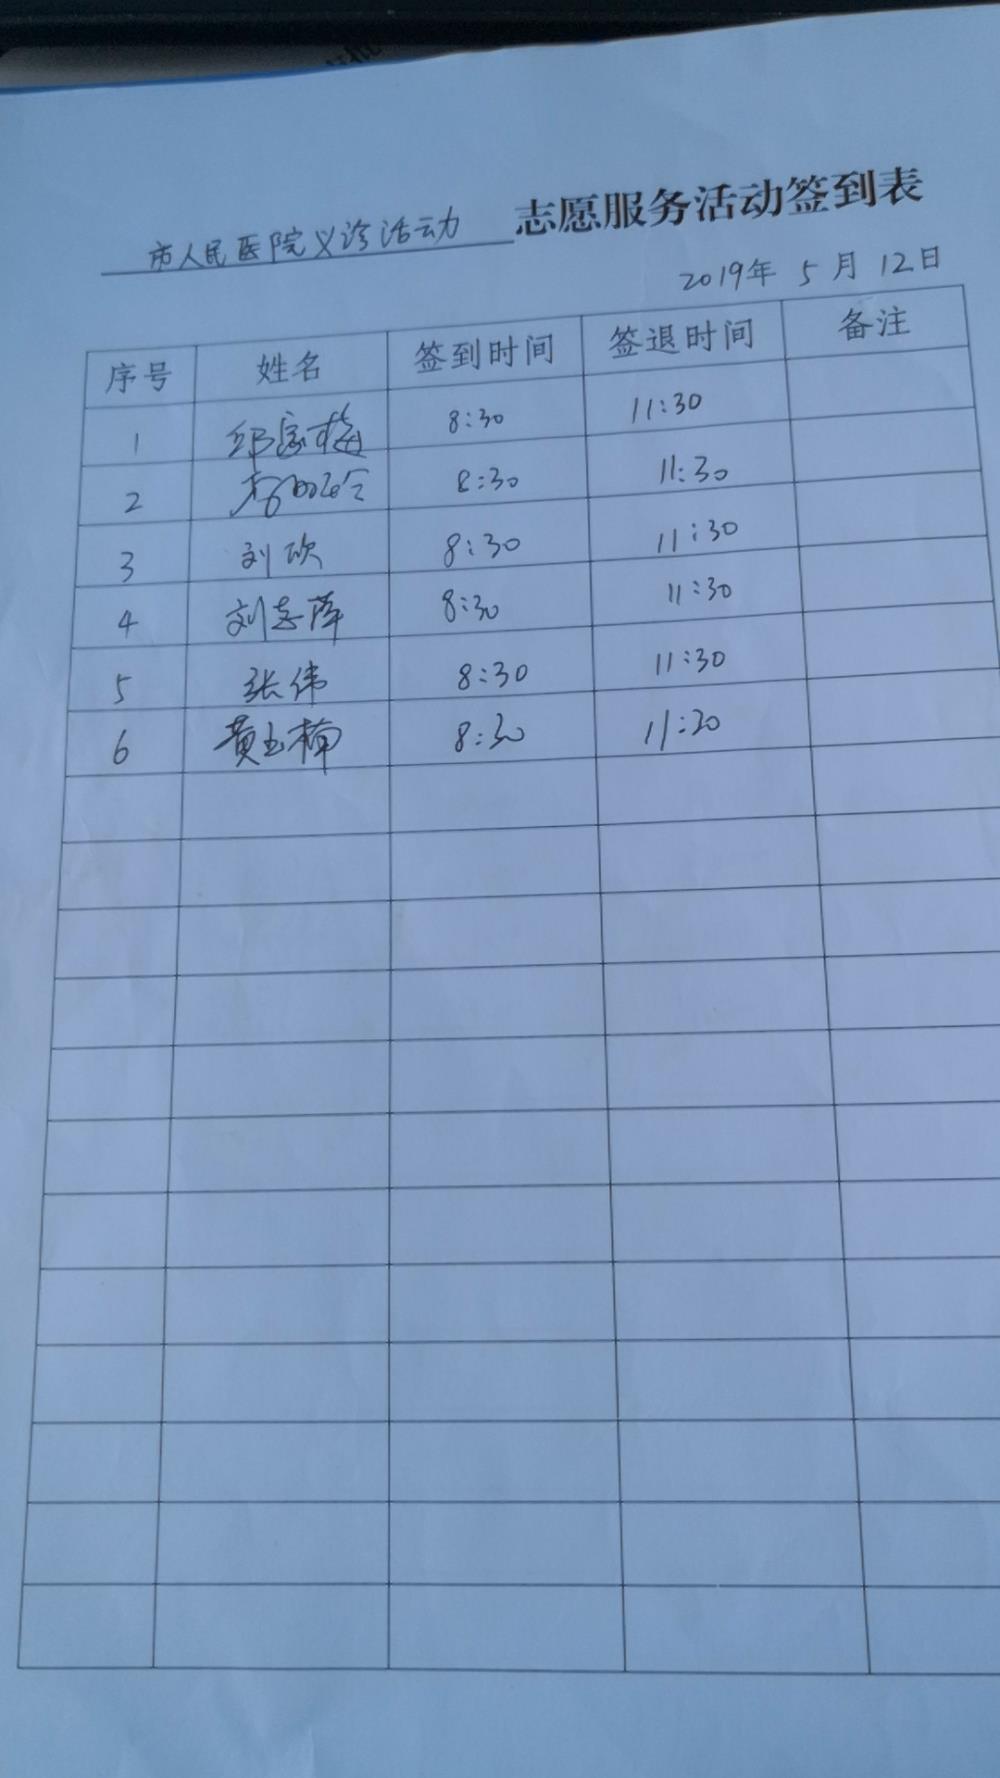 市人民医院义诊活动 志愿服务活动签到表
2019年 5月 12日
序号 姓名 签到时间 签退时间 备注
1 邱家梅 8:30 11:30
2 8:30 11:30
3 刘欣 8:30 11:30
4 刘志萍 8:30 11:30
5 张伟 8:30 11:30
6 黄玉楠 8:30 11:30